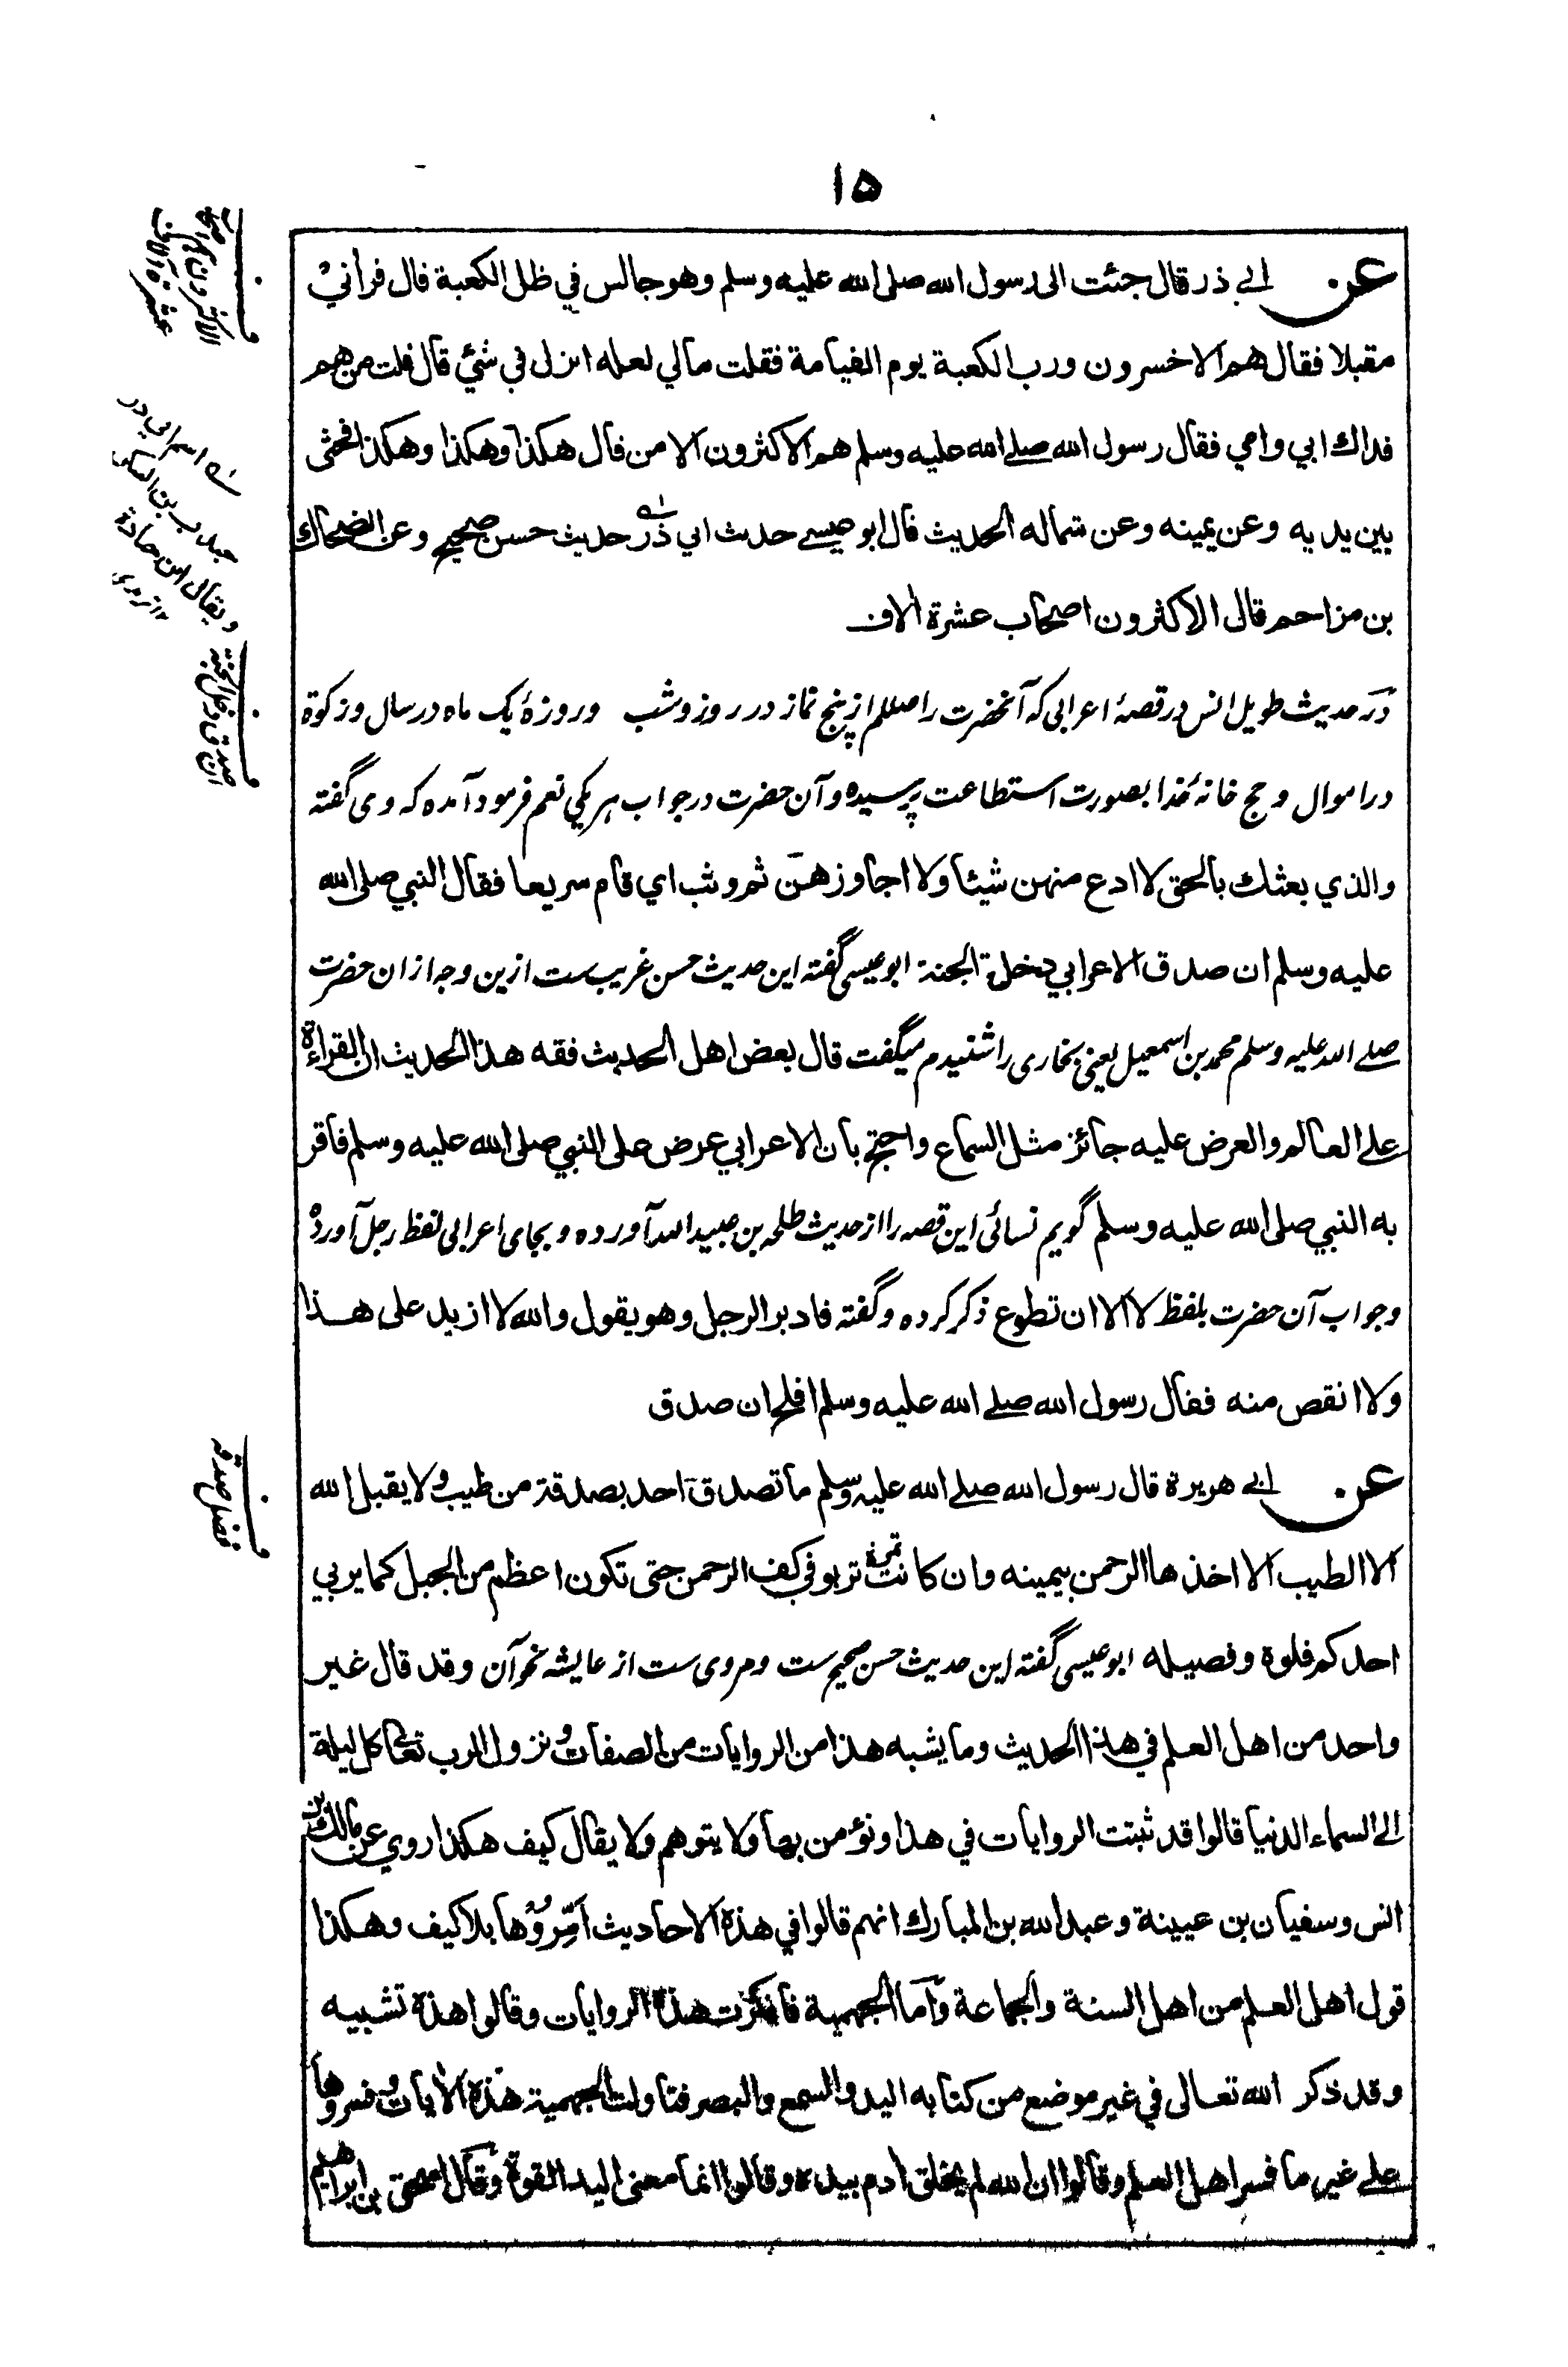 ١٥
عن ابي ذر قال جئت الى رسول الله صلى الله عليه وسلم وهو جالس في ظل الكعبة قال فرأني
مقبلا فقال هم الاخسرون ورب الكعبة يوم القيامة فقلت مالي لعله انزل في شئي قال قلت من هم
فداك ابي وامي فقال رسول الله صلے الله عليه وسلم هم الاكثرون الا من قال هكذا وهكذا وهكذا فحثى
بين يديه وعن يمينه وعن شماله الحديث قال ابو عيسے حديث ابي ذر حديث حسن صحيح وعن الضحاك
بن مزاحم قال الاكثرون اصحاب عشرة الاف
در حدیث طویل انس در قصۂ اعرابی که آنحضرت را صللم از پنج نماز در روز و شب و روزۂ یک ماه در سال و زکوة
در اموال و حج خانۂ خدا بصورت استطاعت پرسیده و آن حضرت در جواب هر یکی نعم فرمود آمده که وی گفته
والذي بعثك بالحق لا ادع منهن شيئا ولا اجاوزهن ثم وثب اي قام سريعا فقال النبي صلى الله
عليه وسلم ان صدق الاعرابي دخل الجنة ابو عیسی گفته این حدیث حسن غریب ست ازین وجه از ان حضرت
صلے الله علیه وسلم محمد بن اسمعیل یعنی بخاری را شنیدم میگفت قال بعض اهل الحديث فقه هذا الحديث ان القراءة
علے العالم والعرض عليه جائز مثل السماع واحتج بان الاعرابي عرض على النبي صلى الله عليه وسلم فاقر
به النبي صلى الله عليه وسلم گویم نسائی این قصه را از حدیث طلحه بن عبید الله آورده و بجای اعرابی لفظ رجل آورده
و جواب آن حضرت بلفظ لا الا ان تطوع ذکر کرده و گفته فادبر الرجل وهو يقول والله لا ازيد على هذا
ولا انقص منه فقال رسول الله صلے الله عليه وسلم افلح ان صدق
عن ابي هريرة قال رسول الله صلے الله عليه وسلم ما تصدق احد بصدقة من طيب ولا يقبل الله
الا الطيب الا اخذها الرحمن بيمينه وان كانت تمرة تربو في كف الرحمن حتى تكون اعظم من الجبل كما يربي
احدكم فلوة وفصيله ابو عیسی گفته این حدیث حسن صحیح ست و مروی ست از عایشه نحو آن وقد قال غير
واحد من اهل العلم في هذا الحديث وما يشبه هذا من الروايات من الصفات ونزول الرب تعالى كل ليلة
الے السماء الدنيا قالوا قد ثبتت الروايات في هذا ونؤمن بها ولا يتوهم ولا يقال كيف هكذا روي عن مالك بن
انس وسفيان بن عيينة وعبد الله بن المبارك انهم قالوا في هذة الاحاديث امروها بلا كيف وهكذا
قول اهل العلم من اهل السنة والجماعة واما الجهمية فانكرت هذة الروايات وقالوا هذة تشبيه
وقد ذكر الله تعالى في غير موضع من كتابه اليد والسمع والبصر فتاولت الجهمية هذة الايات وفسروها
علے غير ما فسر اهل العلم وقالوا ان الله لم يخلق ادم بيدة وقالوا انما معنى اليد القوة وقال اسحق بن ابراهيم
الاكثرون اصحاب
عشرة الاف
جندب بن السكن
ويقال ابن جنادة
ان صدق دخل الجنة
فضل صدقه